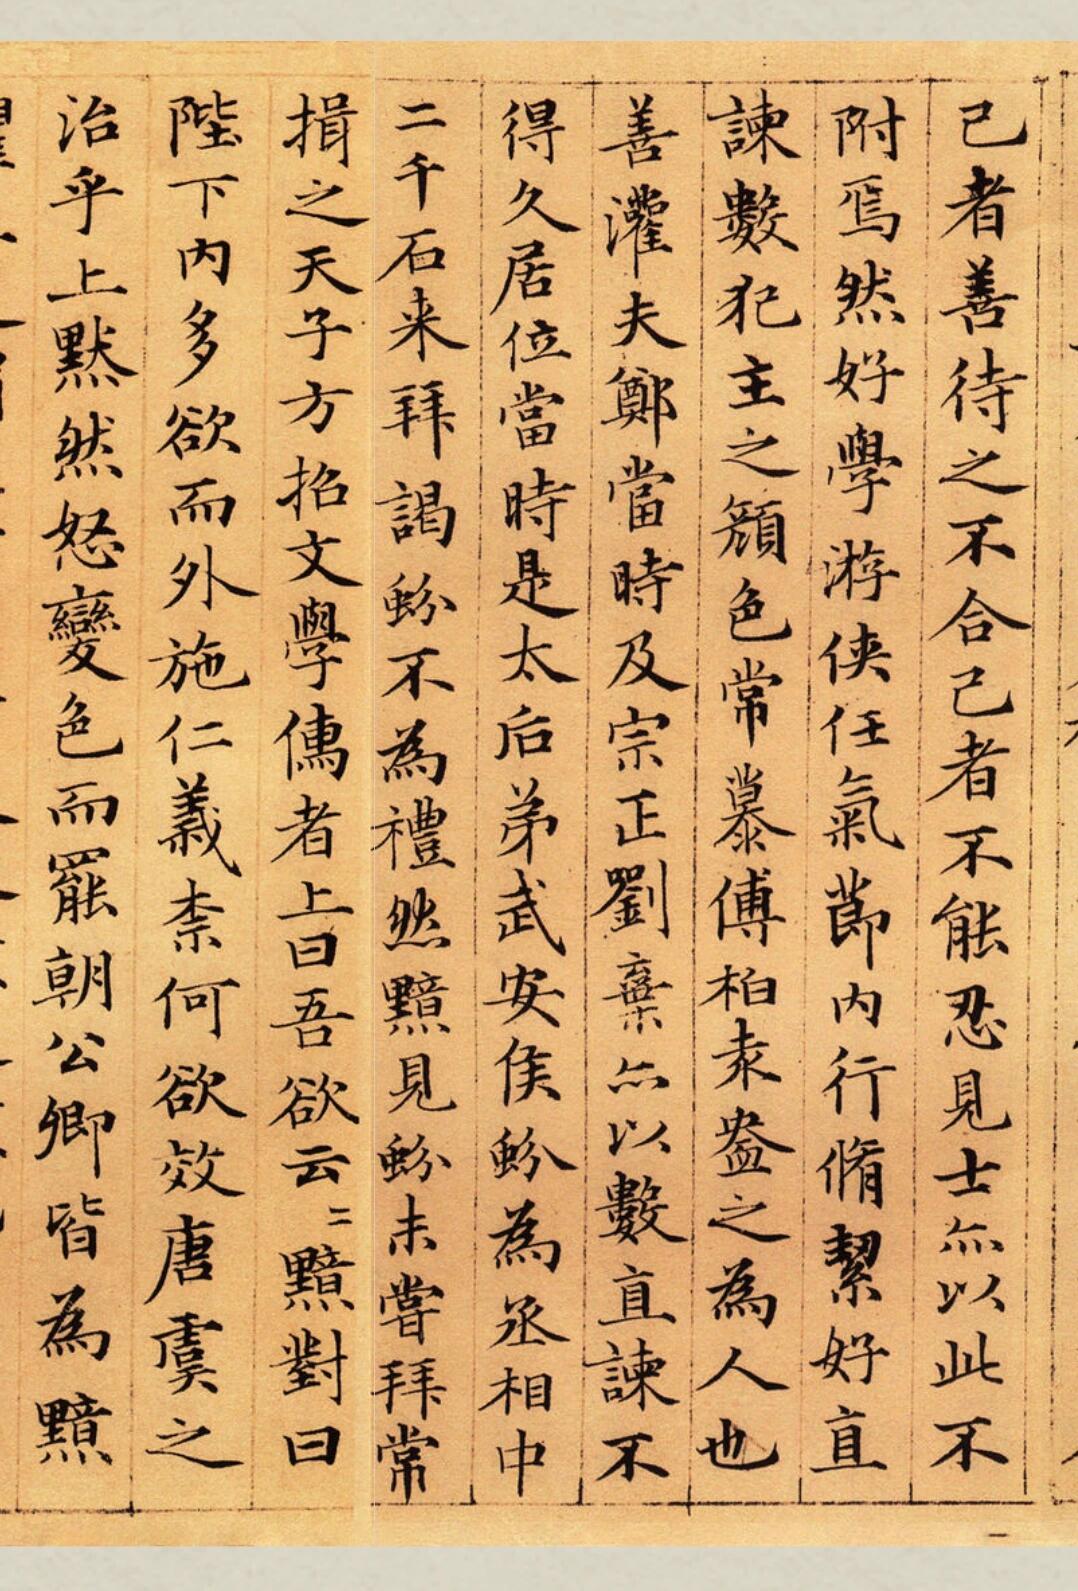 己者善待之不合己者不能忍見士亦以此不
附焉然好學游俠任氣節內行脩絜好直
諫數犯主之顏色常慕傅柏袁盎之為人也
善灌夫鄭當時及宗正劉棄亦以數直諫不
得久居位當時是太后弟武安侯蚡為丞相中
二千石来拜謁蚡不為禮然黯見蚡未嘗拜常
揖之天子方招文學儒者上曰吾欲云〻黯對曰
陛下內多欲而外施仁義柰何欲效唐虞之
治乎上默然怒變色而罷朝公卿皆為黯